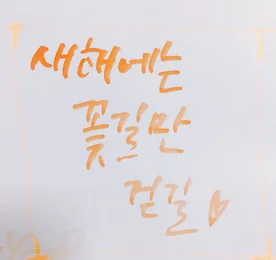 새해에는
꽃길만
걷길♡